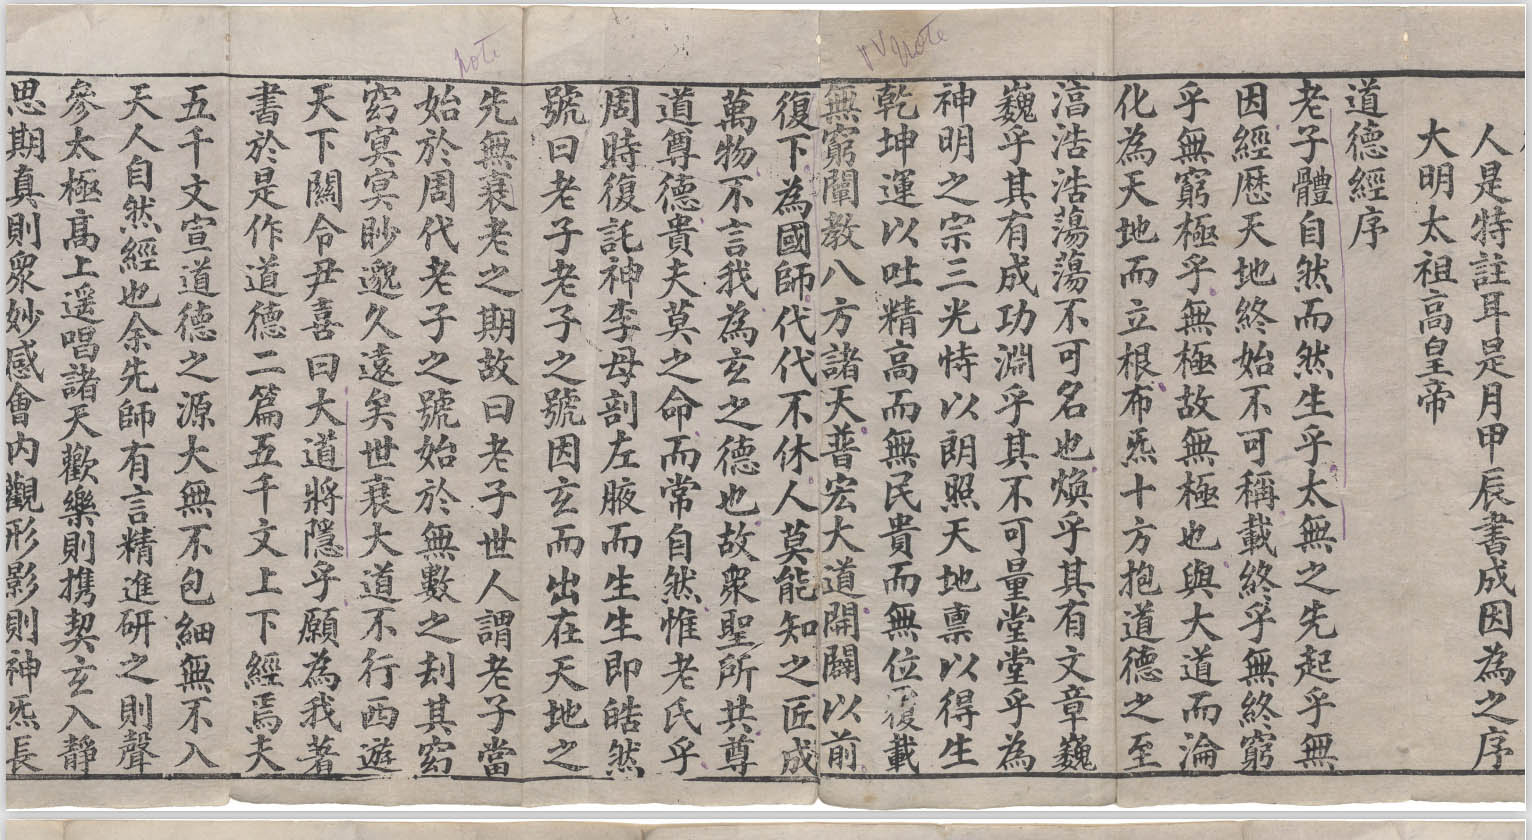 人是特註耳是月甲辰書成因為之序
大明太祖高皇帝
道德經序
老子體自然而然生乎太無之先起乎無
因經歷天地終始不可稱載終乎無終窮
乎無窮極乎無極故無極也與大道而淪
化為天地而立根布炁十方抱道德之至
湻浩浩蕩蕩不可名也煥乎其有文章巍
巍乎其有成功淵乎其不可量堂堂乎為
神明之宗三光恃以朗照天地禀以得生
乾坤運以吐精高而無民貴而無位覆載
無窮闡教八方諸天普宏大道開闢以前
復下為國師代代不休人莫能知之匠成
萬物不言我為玄之德也故衆聖所共尊
道尊德貴夫莫之命而常自然惟老氏乎
周時復託神李母剖左腋而生生即皓然
號曰老子老子之號因玄而出在天地之
先無衰老之期故曰老子世人謂老子當
始於周代老子之號始於無數之刦其窈
窈冥冥眇邈久遠矣世衰大道不行西遊
天下關令尹喜曰大道將隱乎願為我著
書於是作道德二篇五千文上下經焉夫
五千文宣道德之源大無不包細無不入
天人自然經也余先師有言精進研之則聲
參太極高上遥唱諸天歡樂則携契玄入靜
思期真則衆妙感會内觀形影則神炁長
note
note